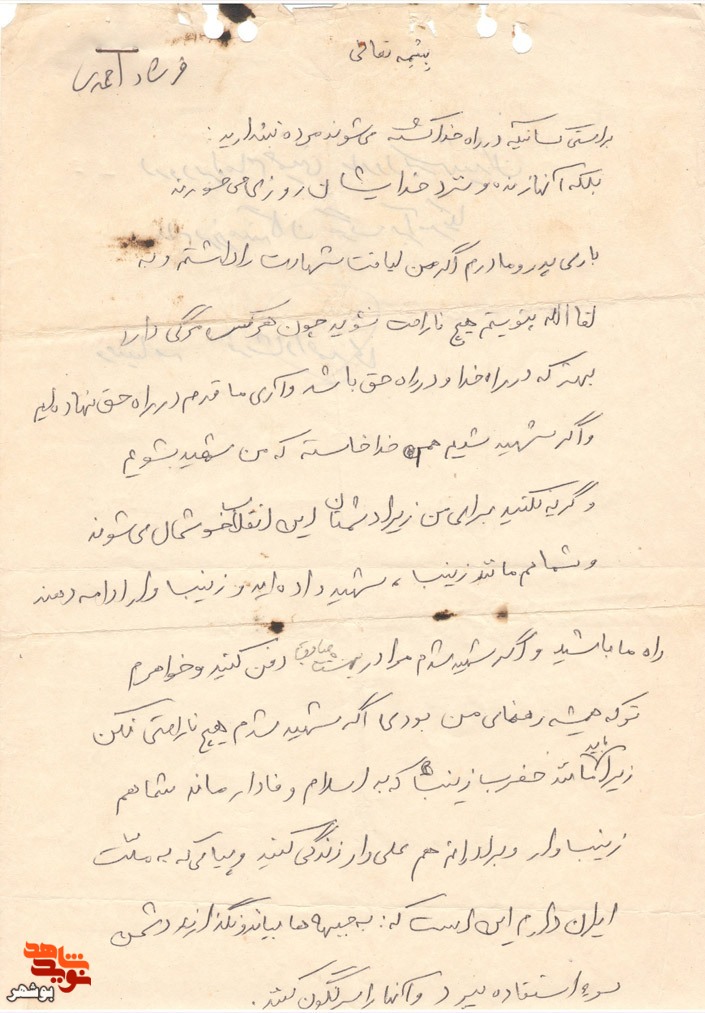 بسمه تعالی
فرشاد احمدی
براستی کسانیکه در راه خدا کشته می‌شوند مرده نپندارید:
بلکه آنها زنده و نزد خدایشان روزی می‌خورند
باری پدر و مادرم اگر من لیاقت شهادت را داشتم و به
لقاالله پیوستم هیچ ناراحت نشوید چون هر کس مرگی دارد
بهتر که در راه خدا و در راه حق باشد و آری ما قدم در راه حق نهاده‌ایم
و اگر شهید شدیم خدا خاسته که من شهید بشویم
و گریه نکنید برای من زیرا دشمنان این انقلاب خوشحال می‌شوند
و شما هم مانند زینب، شهید داده‌اید و زینب‌وار ادامه دهنده
راه ما باشید و اگر شهید شدم مرا در بهشت صادق دفن کنید و خواهرم
تو که همیشه رهنمای من بودی اگر شهید شدم هیچ ناراحتی نکن
زیرا باید مانند حضرت زینب که به اسلام وفادار ماند شما هم
زینب‌وار و برادرانم هم علی‌وار زندگی کنید و پیامی که به ملت
ایران دارم این است که: به جبهه‌ها بیاند و نگذارند دشمن
سوء استفاده ببرد و آنها را سرنگون کنند.
نوید شاهد
بوشهر